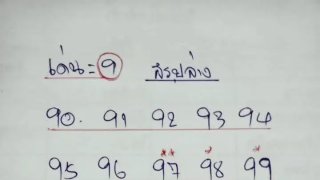 เด่น = 9 สรุปล่าง
90. 91 92 93 94
95 96 97 98 99